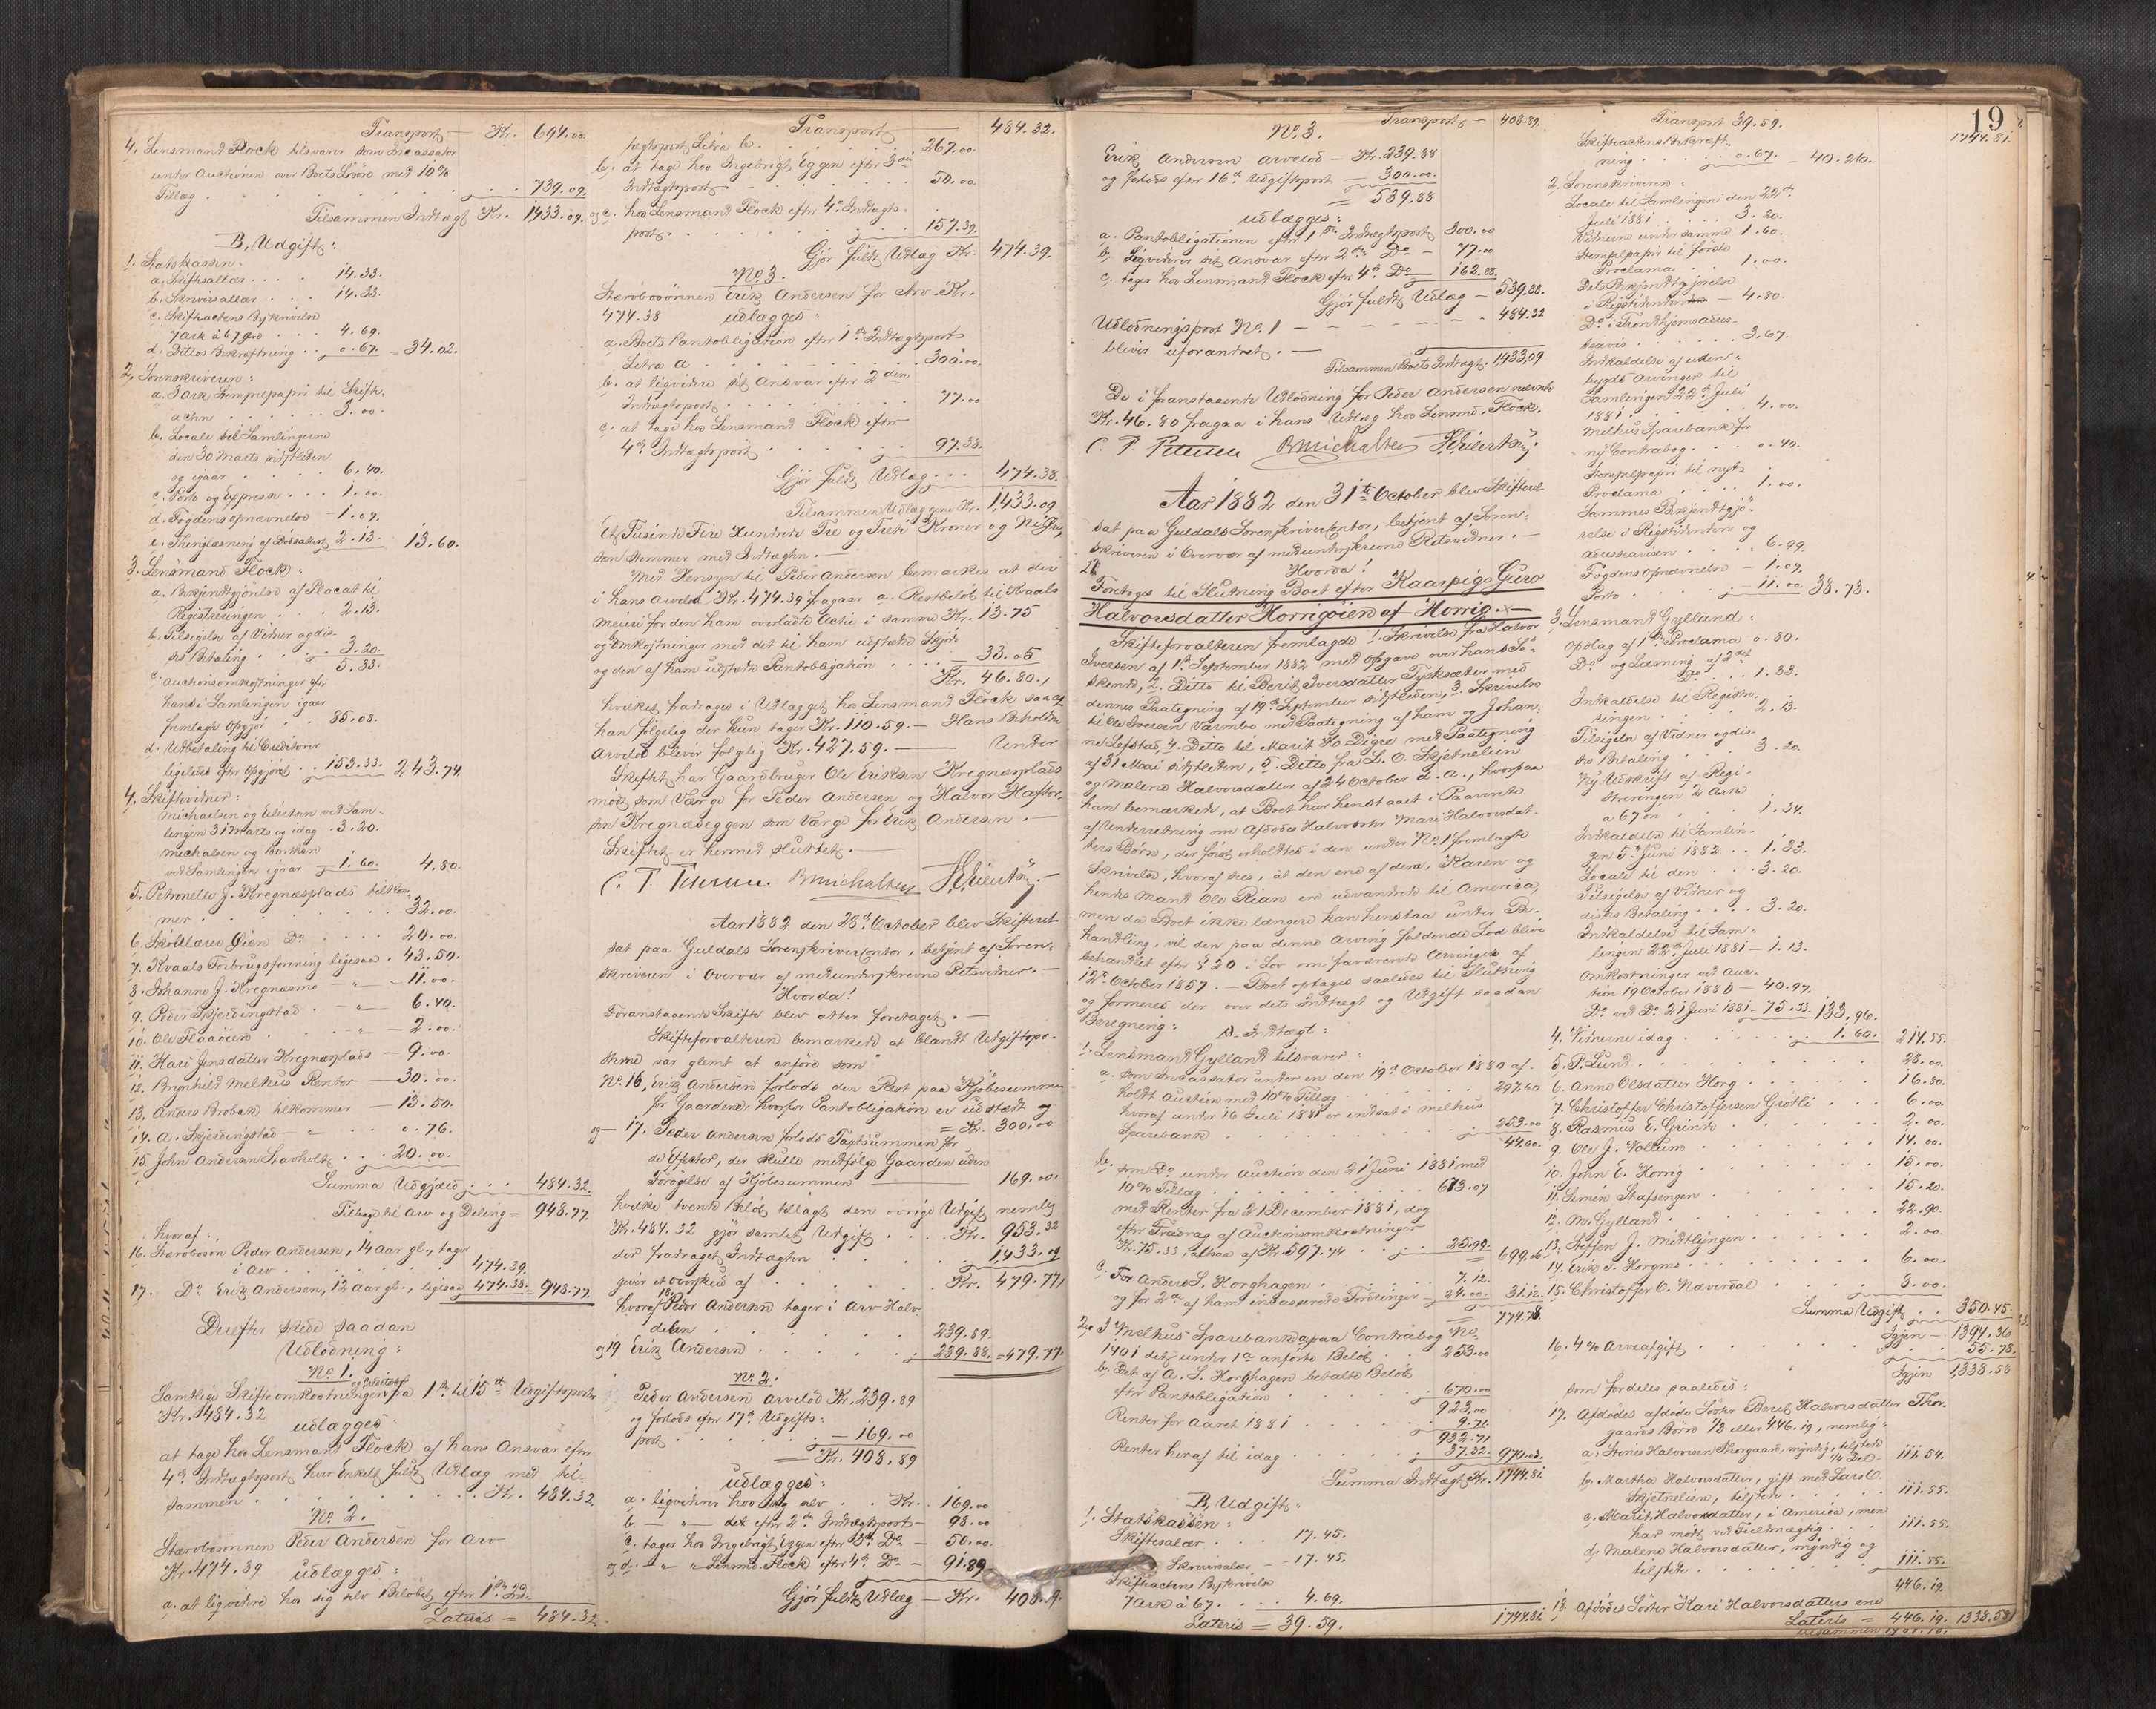 Transport — Kr. 694.00
4. Lensmand Flock tilsvarer som Incassator
under Auctionen over Boets Løsøre med 10%
Tillæg . . . 739.09.
Tilsammen Indtægt Kr. 1433.09.
B, Udgift:
1. Statskassen:
a. Skiftesallær . . . 14.33.
b. Skriversallær . . . 14.33.
c. Skifteactens Beskrivelse
7 Ark à 67 Øre . . . 4.69.
d. Dittos Bekræftning . . 0.67. = 34.02.
2. Sorenskriveren:
a. 3 Ark Stempelpapir til Skifte-
acten . . . 3.00.
b. Locale til Samlingerne
den 30 Marts sidstleden
og igaar . . . 6.40.
c. Porto og Expresse . . . 1.00.
d. Fogdens Opnævnelse — 1.07.
e. Thinglæsning af 2.13. 13.60.
3. Lensmand Flock:
a. Bekjendtgjørelse af Placat til
Registreringen . . 2.13.
b. Tilsigelse af Vidner og dis-
ses Betaling . . . 3.20.
5.33.
c. Auctionsomkostninger efter
hans i Samlingen igaar
fremlagte Opgjør . . 85.08.
d. Udbetaling til Creditorer
ligeledes efter Opgjøret . . 153.33. 243.74.
4. Skiftevidner:
Michaelsen og Eilertsen ved Sam-
lingen 31 Marts og idag . 3.20.
Michalsen og
ved Samlingen igaar 1.60. 4.80.
5. Petronelle J. Kregnæsplads tilkom-
mer . . . 32.00.
6. Øien Do . . . 20.00.
7. Kvaals Forbrugsforening ligesaa . 43.50.
8. Johanne J. Kregnæsmo — " — 11.00.
9. Peder Skjerdingstad . — " — 6.40.
10. Ole Flaaøien . . — " — 2.00.
11. Mari Jensdatter Kregnæsplads — 9.00.
12. Brynhild Melhus Renter — 30.00.
13. Anders Brobak tilkommer — 13.50.
14. A. Skjerdingstad — " . . 0.76.
15. John Andersen Stavholt . . . 20.00.
Summa Udgjæld . . . 484.32.
Tilbage til Arv og Deling = 948.77.
hvoraf:
16. Stærbosøn Peder Andersen, 14 Aar gl., tager
i Arv . . . 474.39.
17. Do Erik Andersen, 12 Aar gl., ligesaa 474.38. = 948.77.
Derefter skede saadan
Udlodning:
No 1.
Samtlige Skifteomkostninger og Creditorer fra 1ste til 15de Udgiftsposter
Kr. 484.32
udlægges:
at tage hos Lensmand Flock af hans Ansvar efter
4de Indtægtspost hver Enkelt fuldt Udlæg med til-
sammen . . . Kr. 484.32.
No 2.
Stærbosønnen Peder Andersen for Arv
Kr. 474.39 udlægges:
a. at liqvidere hos sig selv Beløbet efter 1ste Ind-
Lateris = 484.32.
Transport 484.32.
tægtspost Litra b. . . . 267.00.
b. at tage hos Ingebrigt Eggen efter 3die
Indtægtspost . . . 50.00.
og c. hos Lensmand Flock efter 4de Indtægts-
post . . . 157.39.
Gjør fuldt Udlæg Kr. 474.39.
No 3.
Stærbosønnen Erik Andersen for Arv Kr.
474.38 udlægges:
a. Boets Pantobligation efter 1ste Indtægtspost
Litra a . . . 300.00.
b. at liqvidere sit Ansvar efter 2den
Indtægtspost . . . 77.00
c. at tage hos Lensmand Flock efter
4de Indtægtspost . . . 97.38.
Gjør fuldt Udlæg . . . 474.38.
Tilsammen Udlæggene Kr. 1433.09
Et Tusinde Fire Hundrede Tre og Treti Kroner og Ni Øre,
som stemmer med Indtægten. —
Med Hensyn til Peder Andersen bemærkes at der
i hans Arvelod Kr. 474.39 fragaar a. Restbeløb til Kvaals
Meieri for den ham overladte Actie i samme Kr. 13.75
og b. Omkostninger med det til ham udstedte Skjøde
og den af ham udstedte Pantobligation . . . . 33.05
Kr. 46.80.,
hvilket fradrages i Udlægget hos Lensmand Flock saa at
han følgelig der kun tager Kr. 110.59. — Hans Beholdne
Arvelod bliver følgelig Kr. 427.59. — Under
Skiftet har Gaardbruger Ole Eriksen Kregnæsplads
mødt som Værge for Peder Andersen og Halvor Haftor-
sen Kregnæseggen som Værge for Erik Andersen. —
Skiftet er hermed sluttet. —
C. T. Petersen BMichalsen
Aar 1882 den 28de October blev Skifteret
sat paa Guldals Sorenskrivercontor, betjent af Soren-
skriveren i Overvær af medunderskrevne Retsvidner. —
Hvorda!
Foranstaaende Skifte blev atter foretaget. —
Skifteforvalteren bemærkede at blandt Udgiftspo-
sterne var glemt at anføre som
No 16, Erik Andersen forlods den Rest paa Kjøbesummen
for Gaarden, hvorfor Pantobligation er udstædt
= Kr. 300.00
og — 17. Peder Andersen forlods Taxtsummen for
de Effecter, der skulle medfølge Gaarden uden
Forøgelse af Kjøbesummen — 169.00.
hvilke tvende Beløb tillagt den øvrige Udgift nemlig
Kr. 484.32 gjør samlet Udgift . . . . Kr. 953.32
der fradraget Indtægten . . . 1433.09
giver et Overskud af . . . Kr. 479.77,
hvoraf 18 Peder Andersen tager i Arv Halv-
delen . . . 239.89.
og 19 Erik Andersen . . . 239.88. = 479.77.
No 2.
Peder Andersen Arvelod Kr. 239.89
og forlods efter 17de Udgifts-
post . . . — 169.00
= Kr. 408.89
udlægges:
a. liqviderer hos sig selv . . Kr. 169.00
b. — " — det efter 2den Indtægtspost — 98.00
c. tager hos Ingebrigt Eggen efter 3die Do — 50.00.
og d. — " " Lensmd. Flock efter 4de Do — 91.89
Gjør fuldt Udlæg — Kr. 408.89.
19
No. 3. Transport — 408.89.
Erik Andersen Arvelod — Kr. 239.88
og forlods efter 16de Udgiftspost — 300.00.
= 539.88
udlægges:
a. Pantobligationen efter 1ste Indtægtspost 300.00
b. liqviderer sit Ansvar efter 2den Do — 77.00
c. tager hos Lensmand Flock efter 4de Do — 162.88.
Gjør fuldt Udlæg — 539.88.
Udlodningspost No. 1 — — — — 484.32
bliver uforandret. —
Tilsammen Boets Indtægt 1,433.09
De i foranstaaende Udlodning for Peder Andersen nævnte
Kr. 46.80 fragaa i hans Udlæg hos Lensmd. Flock.
C. T. Petersen BMichalsen
Aar 1882 den 31te October blev Skifteret
sat paa Guldals Sorenskrivercontor, betjent af Soren-
skriveren i Overvær af medunderskrevne Retsvidner. —
Hvorda!
Foretoges til Slutning Boet efter Kaarpige Guro
Halvorsdatter Horrigøien af Horrig. —
Skifteforvalteren fremlagde 1. Skrivelse fra Halvor
Iversen af 1ste September 1882 med Opgave over hans Sø-
skende, 2. Ditto til Berit Iversdatter Tysksæter med
dennes Paategning af 19de September sidstleden, 3. Skrivelse
til Ole Iversen Varmbo med Paategning af ham og Johan-
ne Lefstad, 4. Ditto til Marit Digre med Paategning
af 31 Mai sidstleden, 5. Ditto fra L. O. Skjetnelien
og Malene Halvorsdatter af 24 October d. A., hvorpaa
han bemærkede, at Boet har henstaaet i Paavente
af Underretning om Afdødes Halvsøster Mari Halvorsdat-
ters Børn, der først erholdtes i den under No 1 fremlagte
Skrivelse, hvoraf sees, at den ene af dem, Karen og
hendes Mand Ole Rian ere udvandrede til America,
men da Boet ikke længere kan henstaa under Be-
handling, vil den paa denne Arving faldende Lod blive
behandlet efter § 20 i Lov om fraværende Arvinger af
12te October 1857. — Boet optages saaledes til Slutning
og formeres der over dets Indtægt og Udgift saadan
Beregning:
A. Indtægt:
1. Lensmand Gylland tilsvarer:
a. som Incassator under en den 19de October 1880 af-
holdt Auction med 10% Tillæg . . . 297.60
hvoraf under 16 Juli 1881 er indsat i Melhus
Sparebank . . . 253.00
44.60.
b. som Do under Auction den 21 Juni 1881 med
10% Tillæg . . . 613.07
med Renter fra 21 December 1881, dog
efter Fradrag af Auctionsomkostninger
Kr. 75.33, altsaa af Kr. 597.74 . . . 25.99. 699.06
c. For Anders S. Horghagen . . . 7.12.
og for 2de af ham incasserede Fordringer — 24.00. 31.12.
774.78.
2. I Melhus Sparebank paa Contrabog No
1401 det under 1a anførte Beløb . . 253.00
b. Det af A. S. Horghagen betalte Beløb
efter Pantobligation . . . 670.00
923.00
Renter for Aaret 1881 . . . 9.71.
932.71
Renter heraf til idag . . . 37.32. 970.03.
Summa Indtægt Kr. 1744.81.
B, Udgift:
1. Statskassen:
Skiftesalær . . . 17.45.
Skriversalær — 17.45.
Skifteactens Beskrivelse
7 Ark à 67. . . . 4.69.
Lateris = 39.59. 1744.81
Transport 39.59. 1744.81.
Skifteactens Bekræft-
ning . . . 0.67. — 40.26.
2. Sorenskriveren:
Locale til Samlingen den 22de
Juli 1881 . . . 3.20.
Vidnerne under samme 1.60.
Stempelpapir til første
Proclama . . . 1.00.
Dets Bekjendtgjørelse
i Rigstidenden — 4.80.
Do i Trondhjems Adres-
seavis . . . 3.67.
Indkaldelse af uden-
bygds Arvinger til
Samlingen 22de Juli
1881 . . . 4.00.
Melhus Sparebank for
ny Contrabog . . 0.40.
Stempelpapir til nyt
Proclama . . . 1.00.
Sammes Bekjendtgjø-
relse i Rigstidenden og
Adresseavisen . . . 6.99.
Fogdens Opnævnelse — 1.07.
Porto . . . 11.00. 38.73.
3. Lensmand Gylland:
Opslag af 1ste Proclama 0.80.
Do og Læsning af 2det
Do . . . 1.33.
Indkaldelse til Registre-
ringen . . . 2.13.
Tilsigelse af Vidner og dis-
ses Betaling . . . 3.20.
Ny Udskrift af Regi-
streringen 2 Ark
a 67 Øre . . . 1.34.
Indkaldelse til Samlin-
gen 5te Juni 1882 . . 1.33.
Locale til den . . . 3.20.
Tilsigelse af Vidner og
disses Betaling . . . 3.20.
Indkaldelse til Sam-
lingen 22de Juli 1881 — 1.13.
Omkostninger ved Auc-
tion 19 October 1880 — 40.97.
Do ved Do 21 Juni 1881 — 75.33. 133.96.
4. Vidnerne idag . . . 1.60. 214.55.
5. P. Lund . . . 28.00.
6. Anne Olsdatter Horg . . . 16.80.
7. Christoffer Christoffersen Grøtli . . . 6.00.
8. Rasmus E. Grinde . . . 2.00.
9. Ole J. Vollum . . . 14.00.
10. John E. Horrig . . . 15.00.
11. Simen Stafsengen . . . 15.20.
12. M. Gylland . . . 22.90.
13. Steffen J. Midtlyngen . . . 2.00.
14. Erik S. Horgmo . . . 6.00.
15. Christoffer O. Næverdal . . . 3.00.
Summa Udgift . . 350.45.
Igjen — 1394.36
16. 4% Arveafgift . . . 55.78.
Igjen 1,338.58
som fordeles saaledes:
17. Afdødes afdøde Søster Berit Halvorsdatter Thor-
gaards Børn 1/3 eller 446.19, nemlig:
a. Halvorsen Thorgaard, myndig, tilstede
1/4 Del — 111.54.
b. Martha Halvorsdatter, gift med Lars O.
Skjetnelien, tilstede . . . 111.55.
c. Marit Halvorsdatter, i America, men
har mødt ved Fuldmægtig . . . 111.55.
d. Malene Halvorsdatter, myndig og
tilstede . . . 111.55.
446.19.
18. Afdødes Søster Kari Halvorsdatters ene
Lateris = 446.19. 1338.58